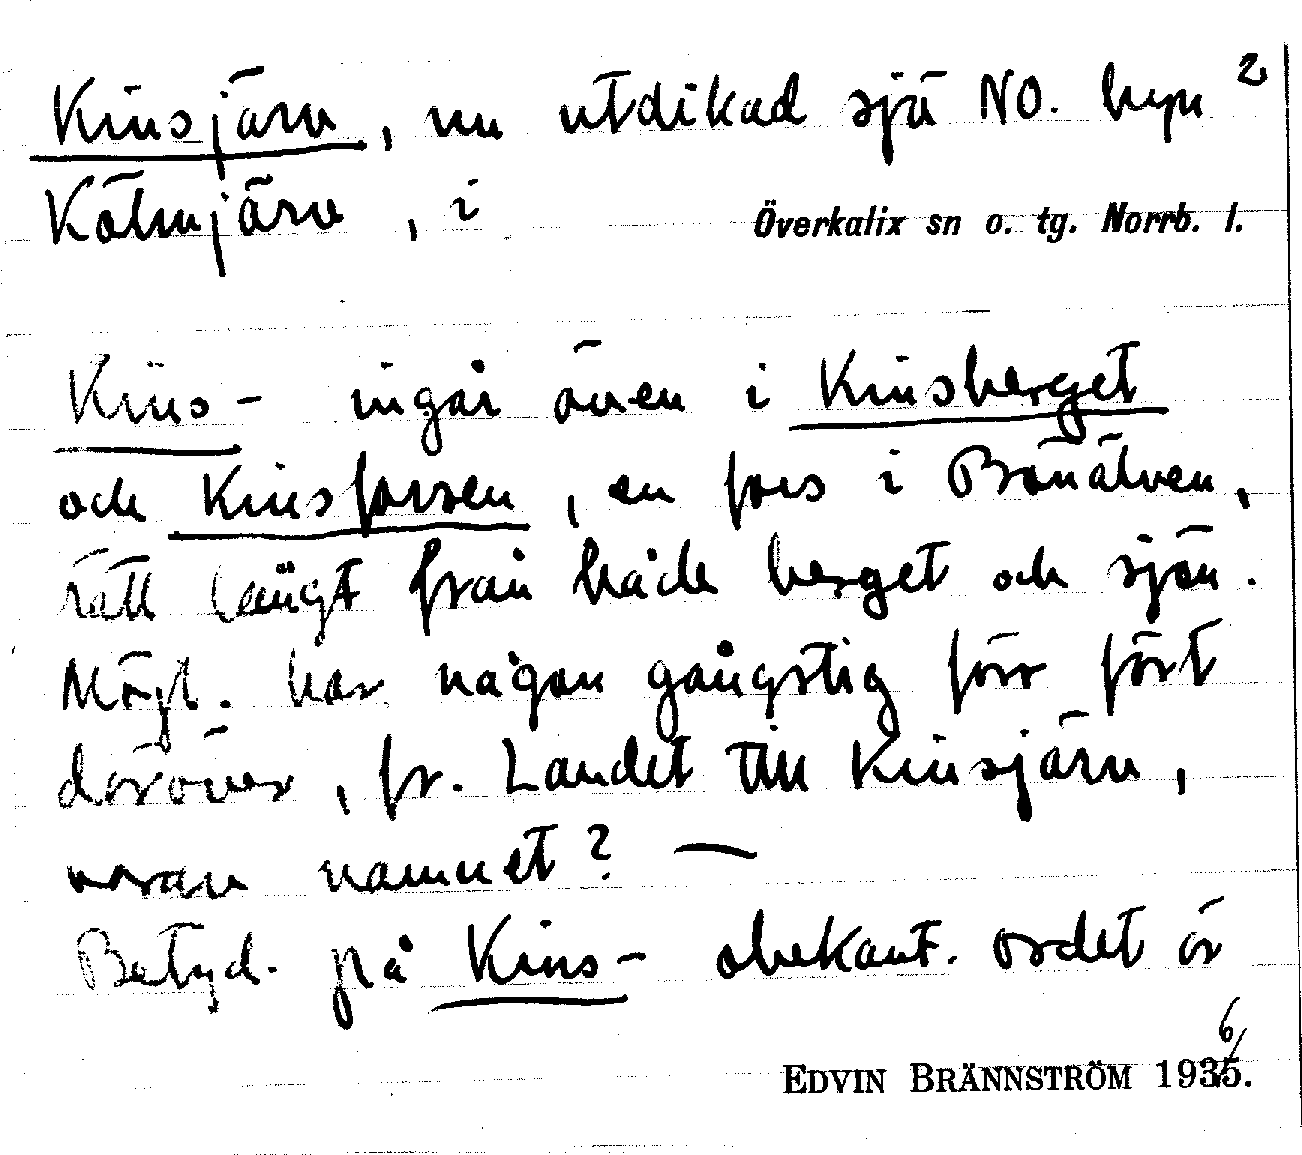 Kinsjärv, nu utdikad sjö NO. byn 2
Kölmjärv, i Överkalix sn o. tg. Norrb. l.
Kins- ingår även i Kinsberget
och Kinsforsen, en fors i Bönälven,
rätt långt från både berget och sjön.
Möjl. har någon gångstig förr fört
däröver, fr. Landet till Kinsjärv,
varav namnet? —
Betyd. på Kins- obekant. Ordet är
EDVIN BRÄNNSTRÖM 1936.